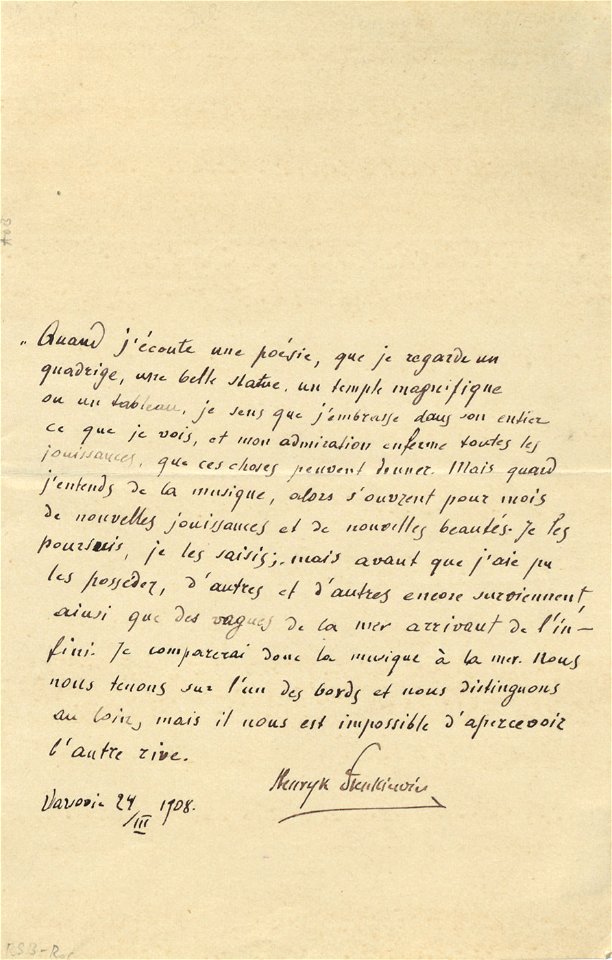 „Quand j'écoute une poésie, que je regarde un
quadrige, une belle statue, un temple magnifique
ou un tableau, je sens que j'embrasse dans son entier
ce que je vois, et mon admiration enferme toutes les
jouissances, que ces choses peuvent donner. Mais quand
j'entends de la musique, alors s'ouvrent pour mois
de nouvelles jouissances et de nouvelles beautés. Je les
poursuis, je les saisis; mais avant que j'aie pu
les posséder, d'autres et d'autres encore surviennent,
ainsi que des vagues de la mer arrivant de l'in-
fini. Je comparerai donc la musique à la mer. Nous
nous tenons sur l'un des bords et nous distinguons
au loin, mais il nous est impossible d'apercevoir
l'autre rive.
Henryk Sienkiewicz
Varsovie 24/III 1908.